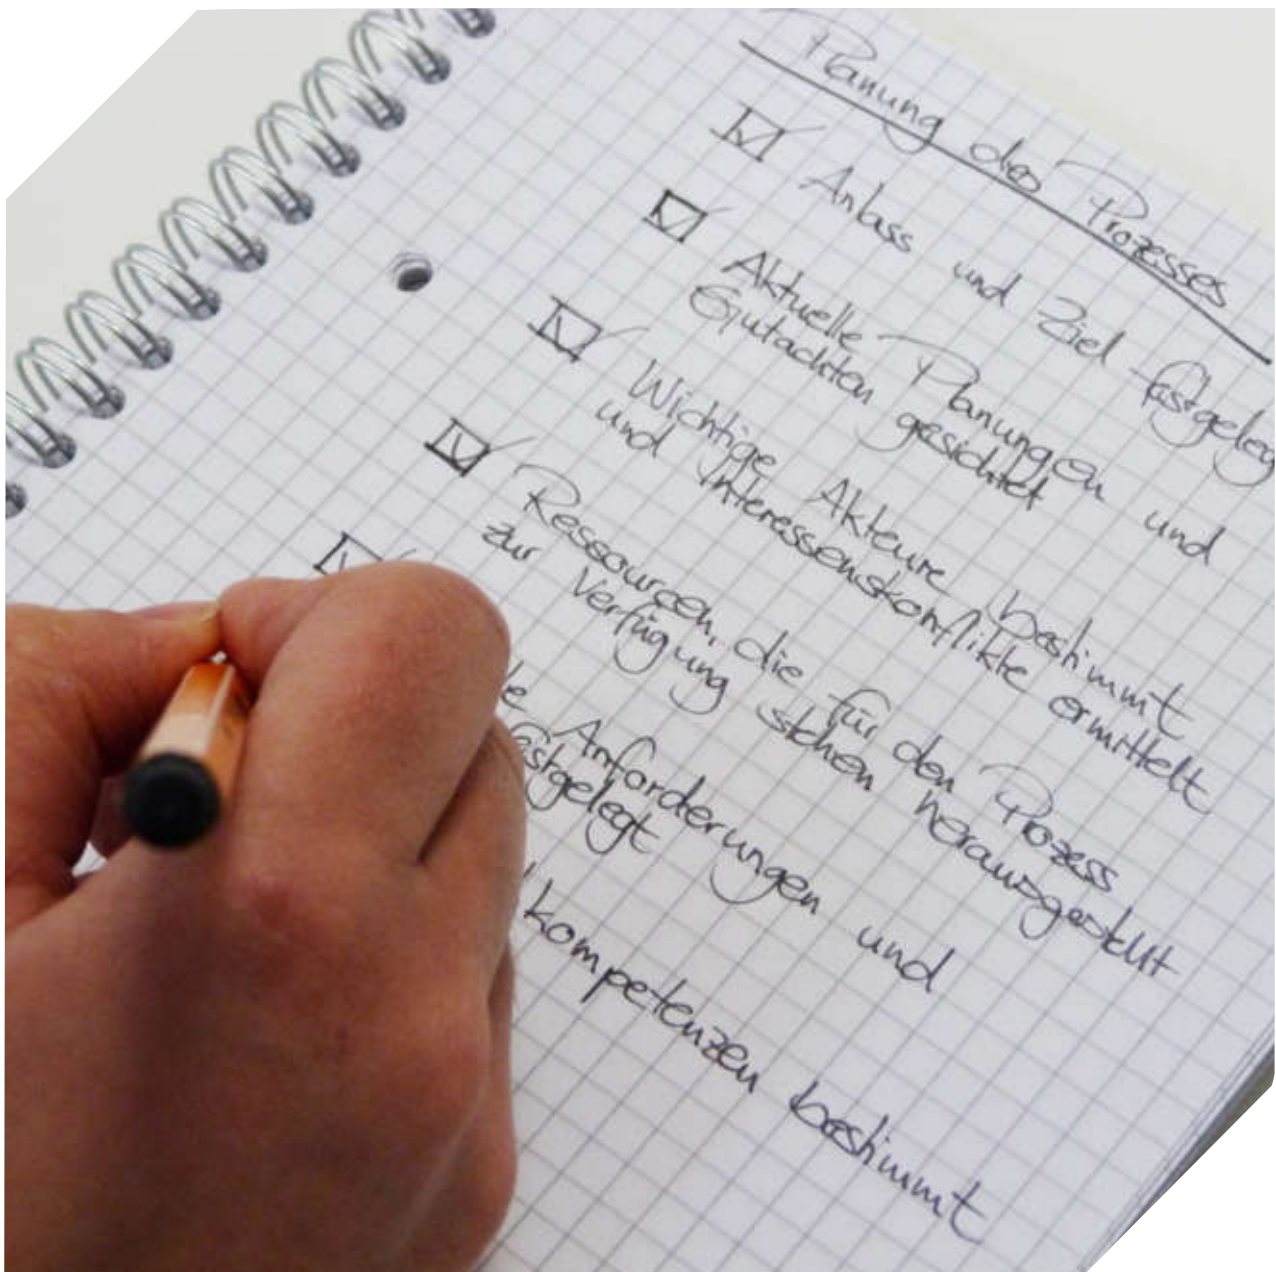 Planung des Prozesses
Anlass und Ziel festgeleg
Aktuelle Planungen und
Gutachten gesichtet
Wichtige Akteure bestimmt
und Interessenskonflikte ermittelt
Ressourcen, die für den Prozess
zur Verfügung stehen herausgestellt
Anforderungen und
festgelegt
kompetenzen bestimmt